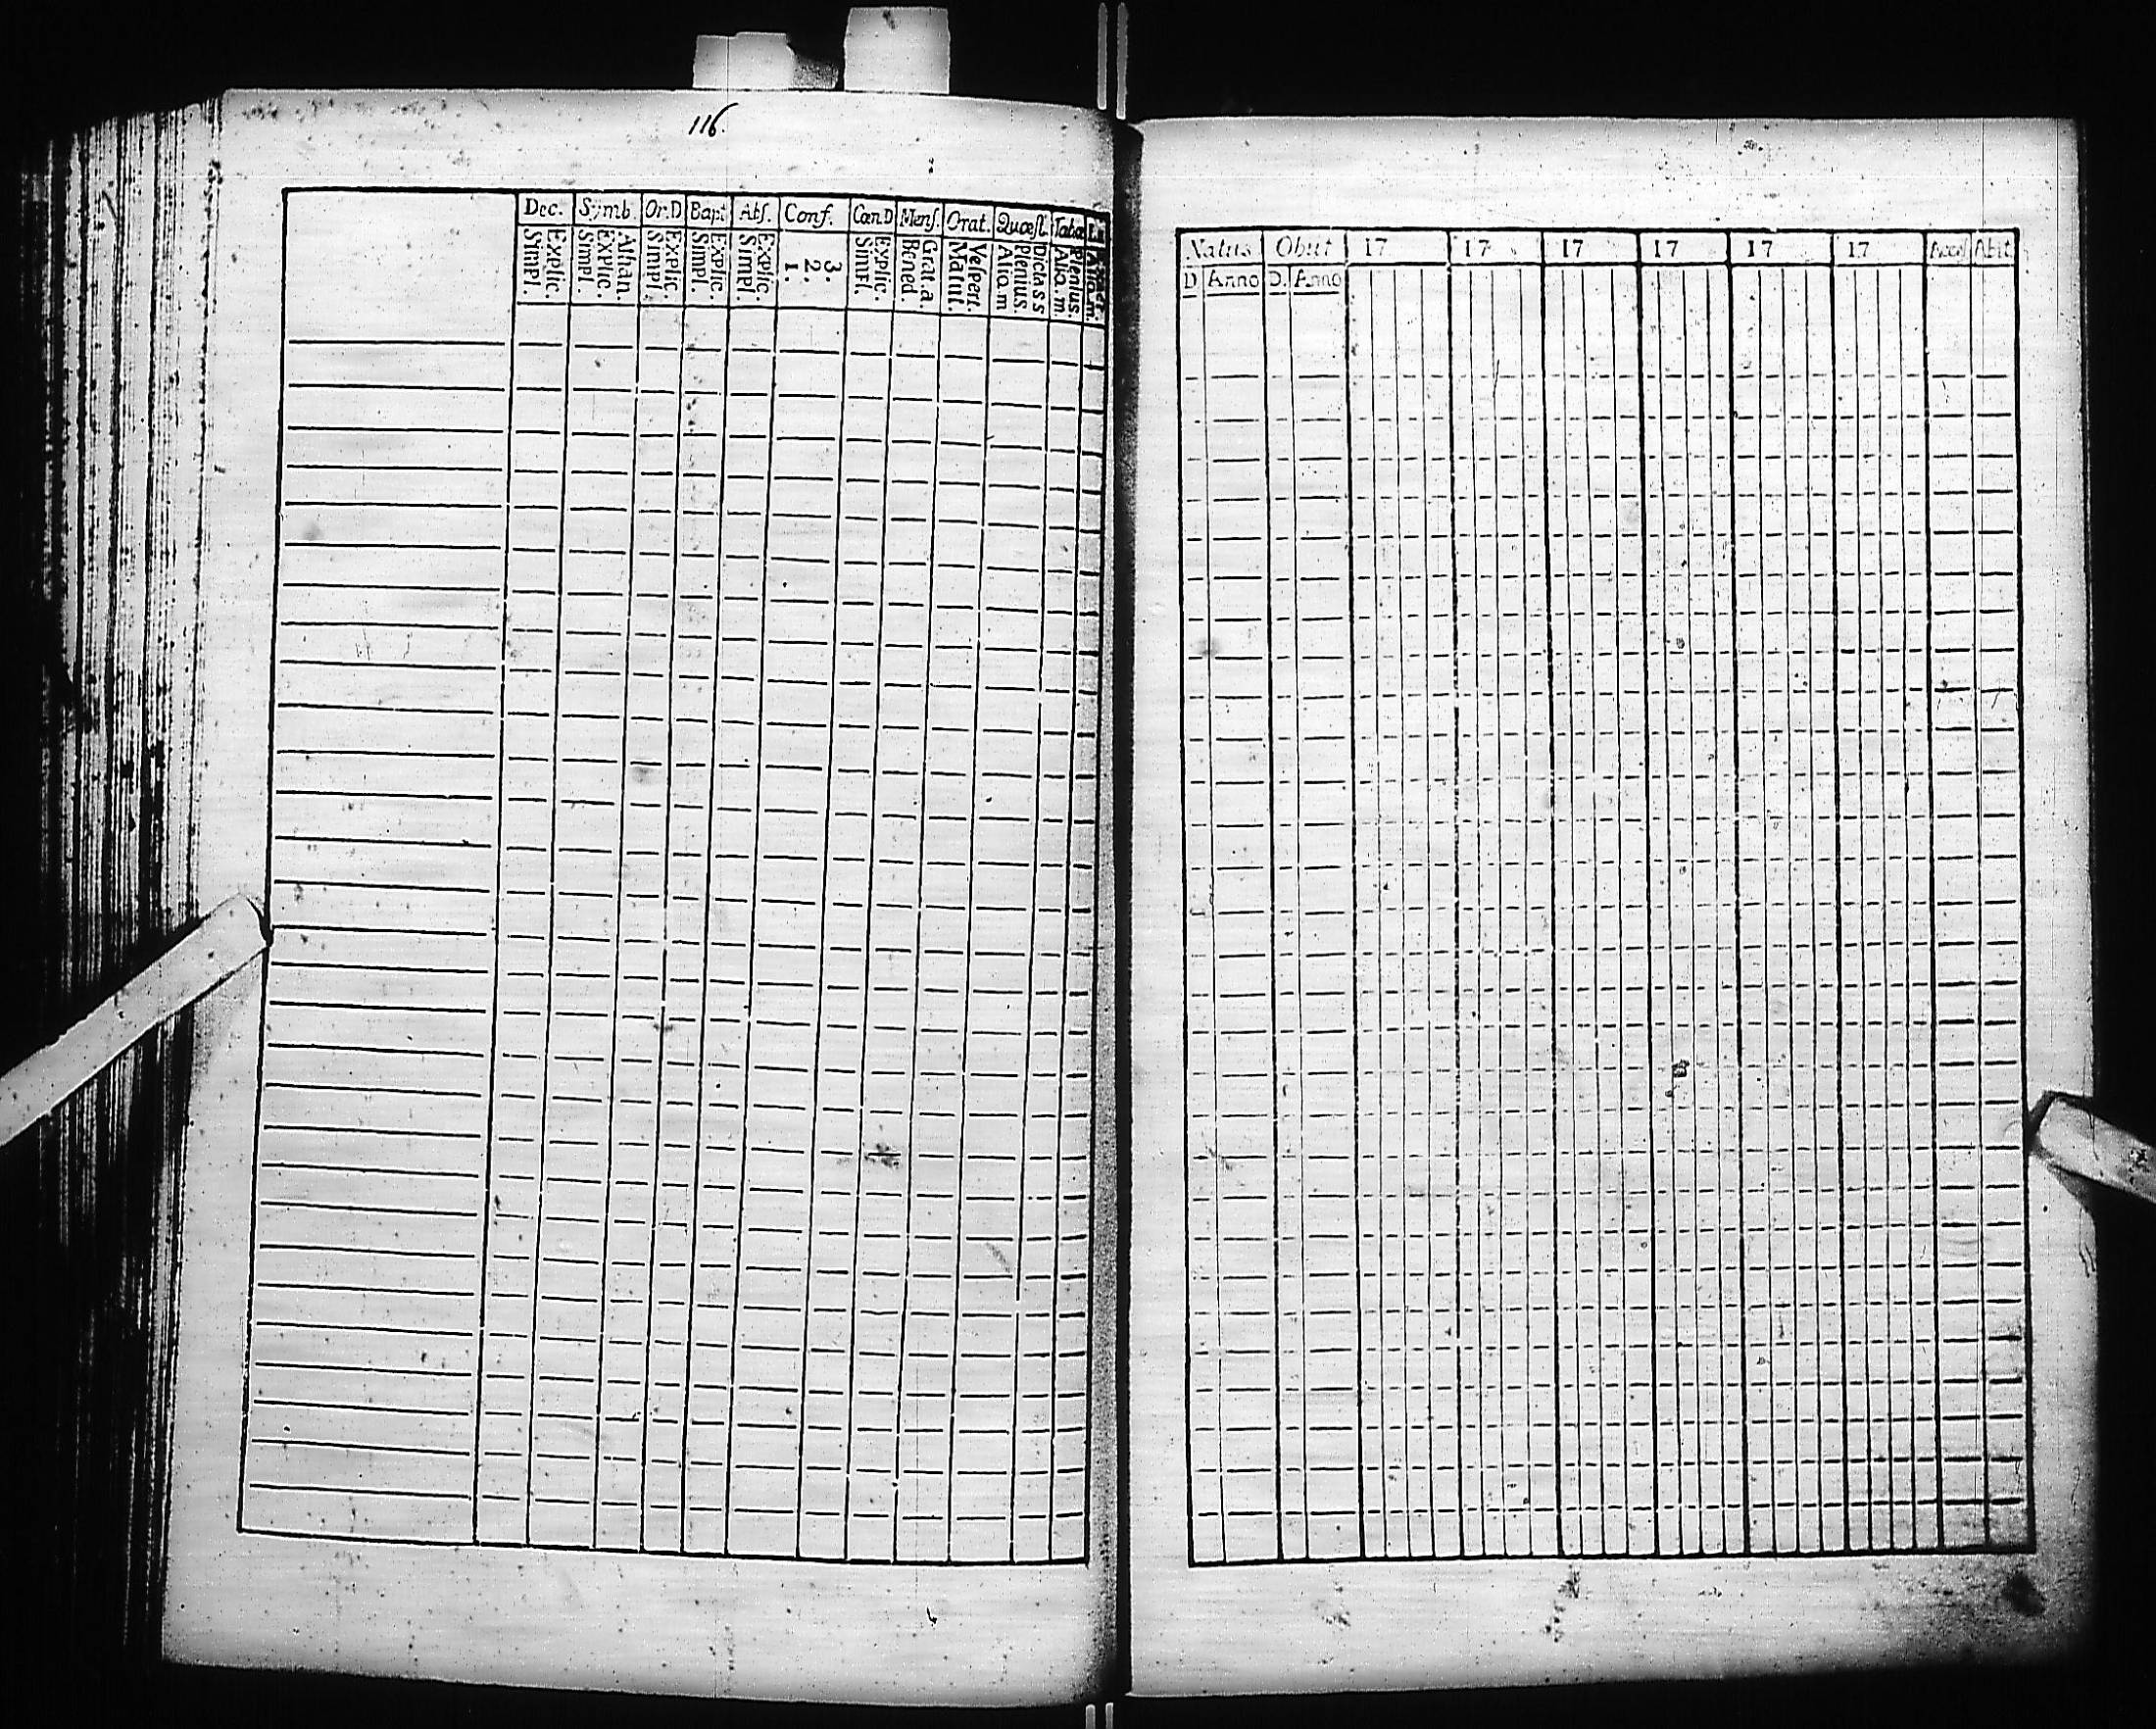 116.
Dec. Symb. Or.D Bapt. Abſ. Conf. Cœn.D Menſ. Orat. Quœſt. Tabœ
Explic. Simpl.
Athan. Explic. Simpl.
Explic. Simpl.
Explic. Simpl.
Explic. Simpl.
3. 2. 1.
Explic. Simpl.
Grat.a. Bened.
Veſpert. Matut.
Dict.s s Plenius. Aliq.m
Plenius. Aliq.m
Aliq.m.
Natus Obiit 17 17 17 17 17 17 Acceſ Abit
D Anno D. Anno